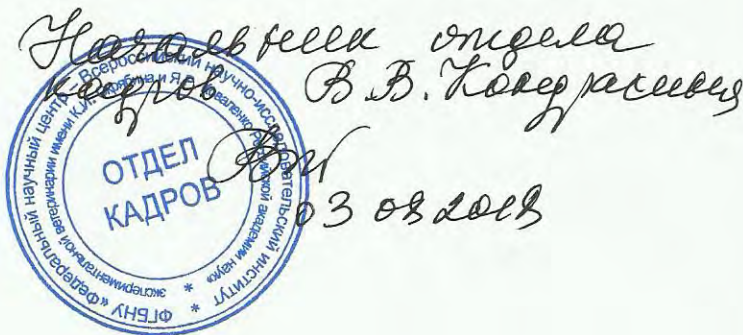 Начальник отдела
кадров В.В. Кондрашина
ОТДЕЛ
КАДРОВ
ФГБНУ «Федеральный научный центр - Всероссийский научно-исследовательский институт
экспериментальной ветеринарии имени К.И. Скрябина и Я.Р. Коваленко Российской академии наук»